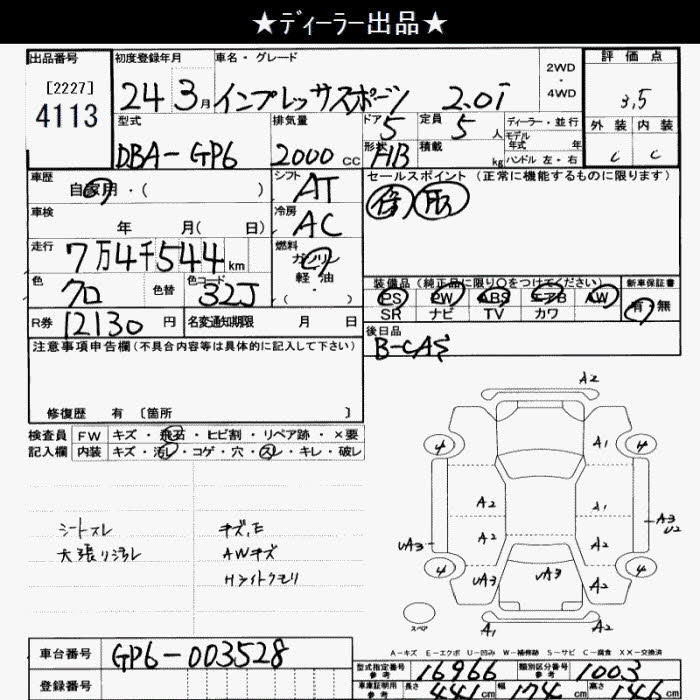 ★ディーラー出品★
出品番号 初度登録年月 車名・グレード 2WD・4WD 評価点
[2227]
4113
24 3月 インプレッサスポーツ 2.0i 3.5
型式 排気量 ドア 5 定員 5人 ディーラー・並行 外装 内装
DBA-GP6 2000cc 形状 HB 積載 kg モデル年式 年 ハンドル 左・右 C C
車歴 自家用・( ) シフト AT セールスポイント (正常に機能するものに限ります)
車検 年 月( 日) 冷房 AC
走行 7万4千544km 燃料 ガソリン・軽油・( )
色 クロ 色替 色コード 32J
装備品 (純正品に限り○をつけてください) 新車保証書
PS PW ABS エアB AW 有・無
SR ナビ TV カワ
R券 12130円 名変通知期限 月 日 後日品
B-CAS
注意事項申告欄 (不具合内容等は具体的に記入して下さい)
修復歴 有 [箇所 ]
検査員 FW キズ・飛石・ヒビ割・リペア跡・×要
記入欄 内装 キズ・汚レ・コゲ・穴・スレ・キレ・破レ
シートスレ キズ,E
天張り汚レ AWキズ
Hライトクモリ
A2
4 A1 4
A2 A1
A2 A2 A3 U2
UA3
4 UA3 UA3 A2 4
スペア A1 A2
A-キズ E-エクボ U-凹み W-補修跡 S-サビ C-腐食 XX-交換済
車台番号 GP6-003528
型式指定番号 参考 16966 類別区分番号 参考 1003
登録番号 車庫証明用 参考 長さ 441cm 幅 174cm 高さ 146cm